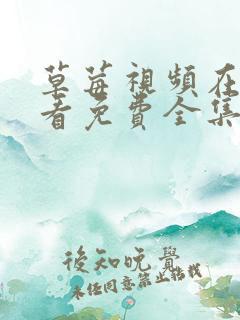 草莓視頻在
看免費全集
後知晚覺
未经同意禁止搭载